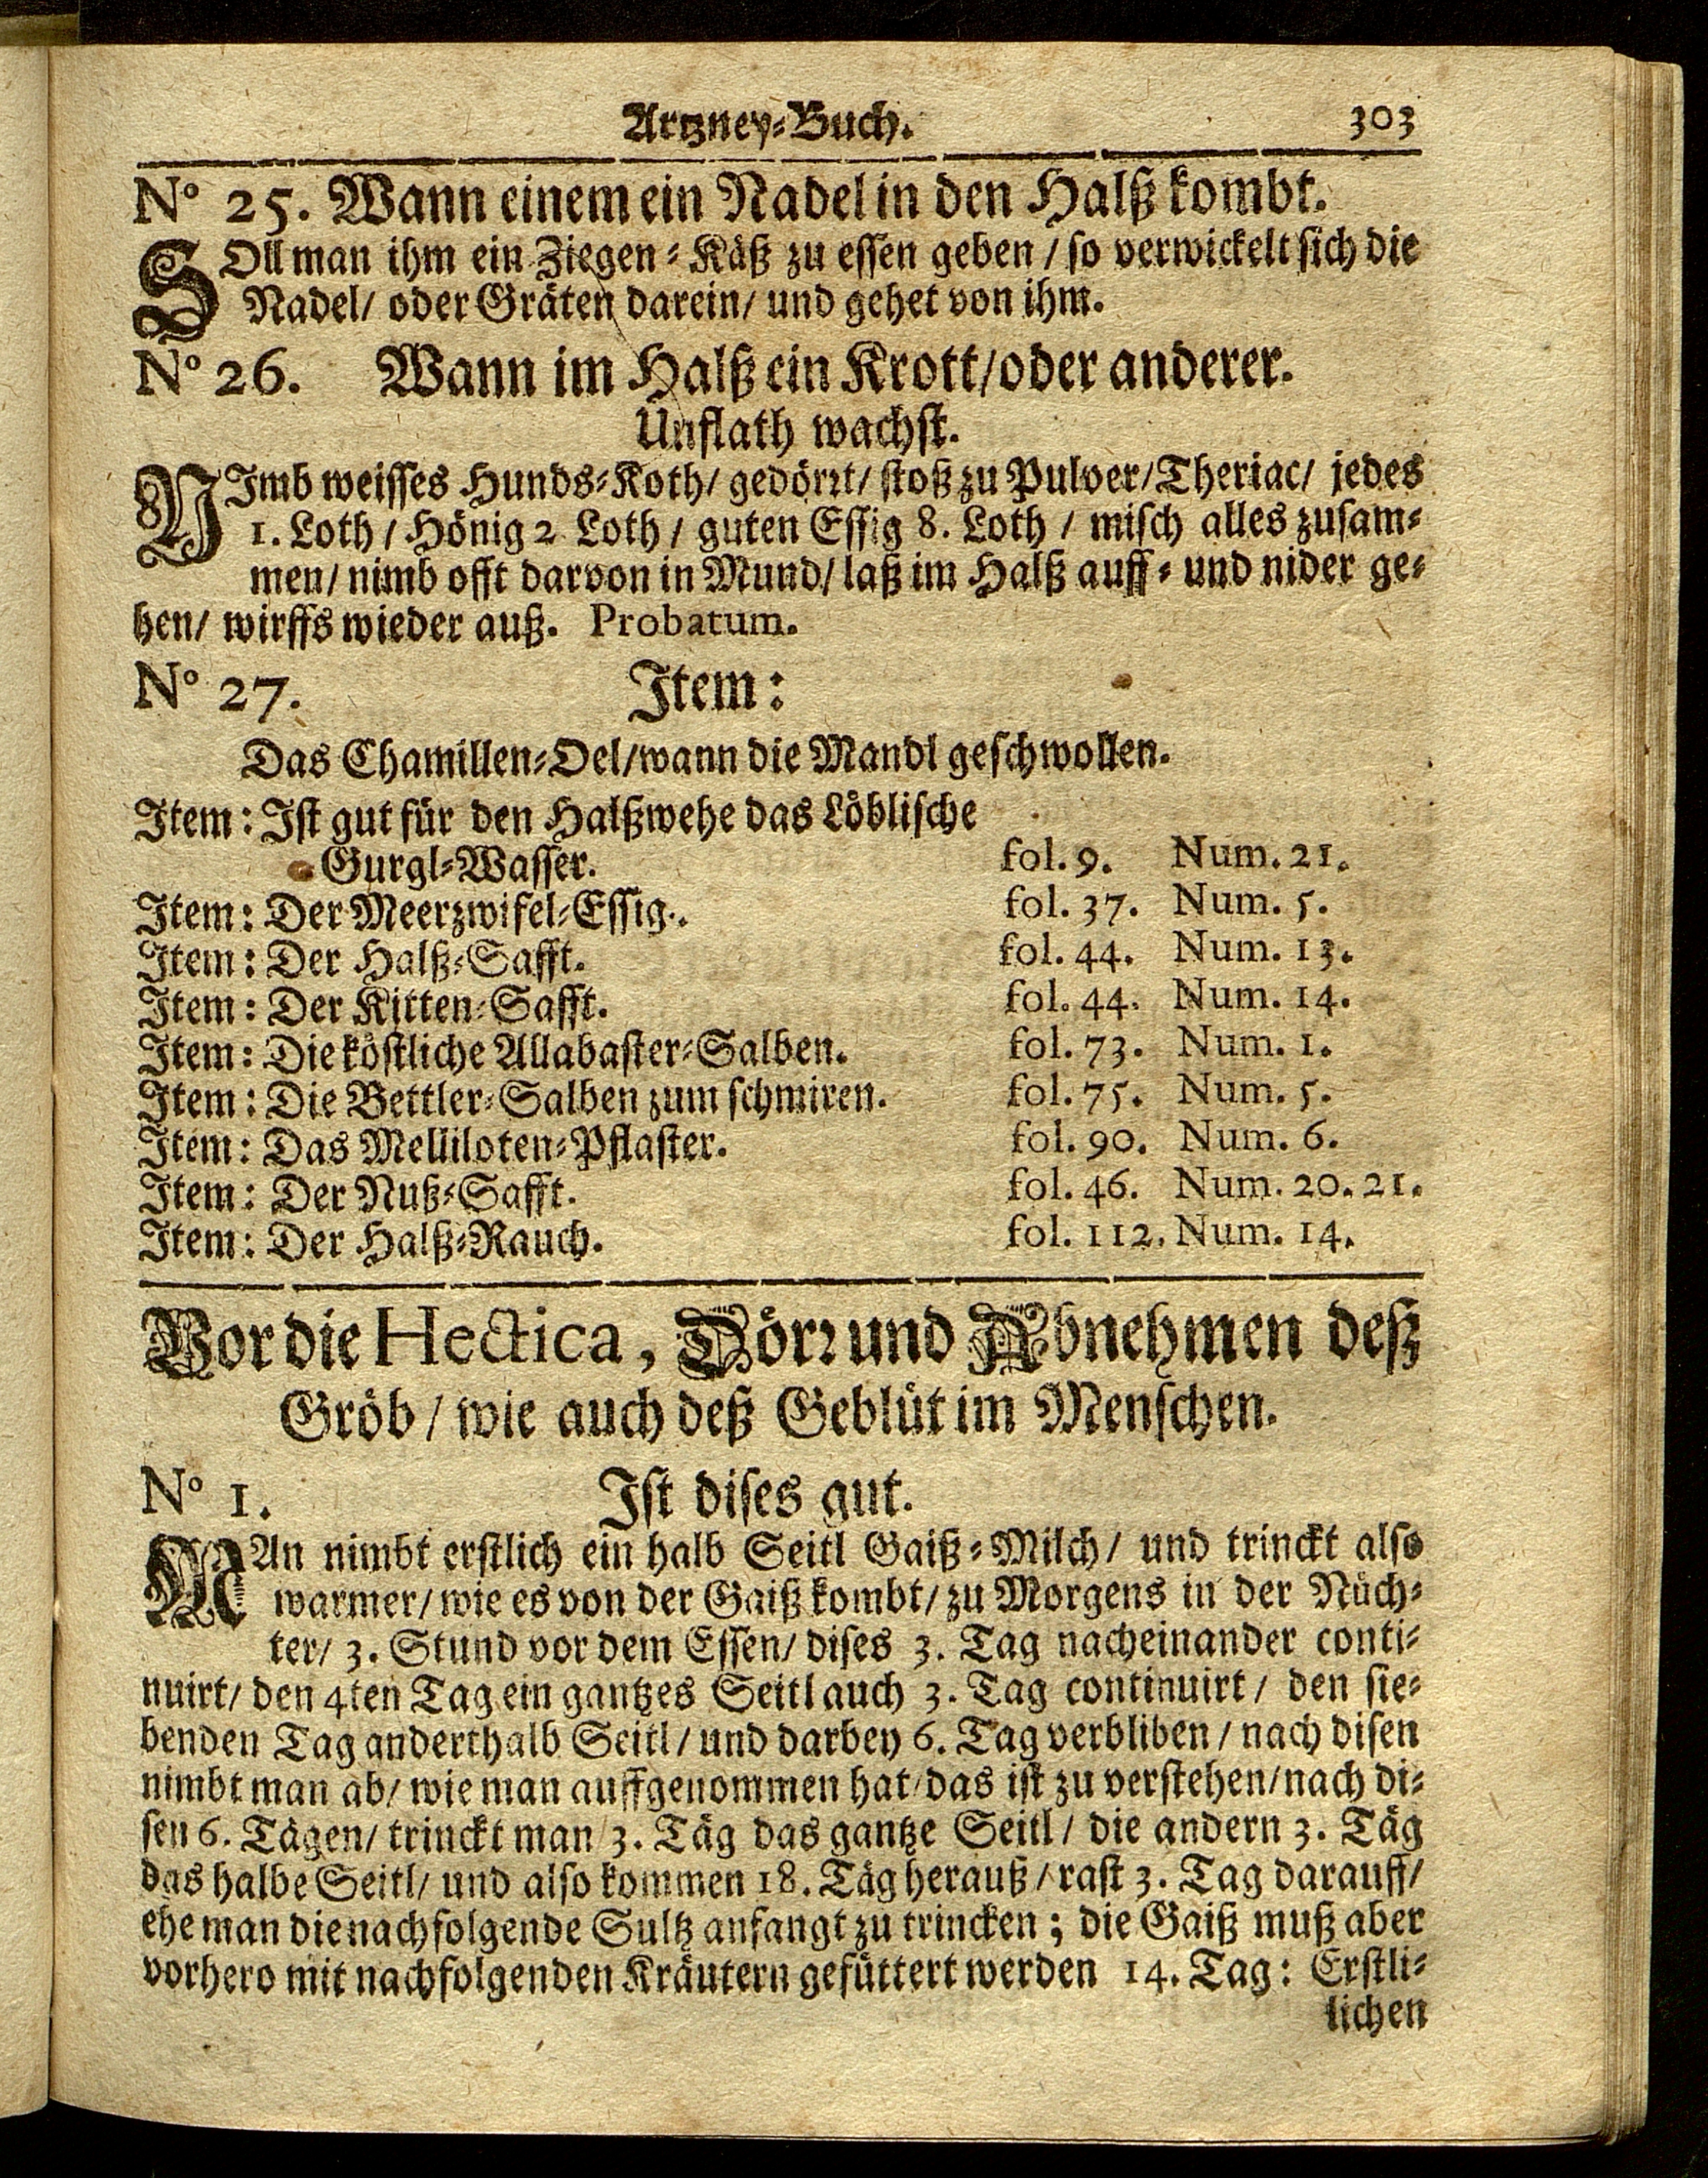 Artzney-Buch. 303
No 25. Wann einem ein Nadel in den Halß kombt.
SOll man ihm ein Ziegen-Käß zu essen geben / so verwickelt sich die
Nadel/ oder Gräten darein/ und gehet von ihm.
No 26. Wann im Halß ein Krott/oder anderer.
Unflath wachst.
NImb weisses Hunds-Koth/ gedörrt/ stoß zu Pulver/Theriac/ jedes
1. Loth / Hönig 2 Loth / guten Essig 8. Loth / misch alles zusam-
men/ nimb offt darvon in Mund/ laß im Halß auff- und nider ge-
hen/ wirffs wieder auß. Probatum.
No 27. Item:
Das Chamillen-Oel/wann die Mandl geschwollen.
Item: Ist gut für den Halßwehe das Löblische
Gurgl-Wasser. fol. 9. Num. 21.
Item: Der Meerzwifel-Essig. fol. 37. Num. 5.
Item: Der Halß-Safft. fol. 44. Num. 13.
Item: Der Kitten-Safft. fol. 44. Num. 14.
Item: Die köstliche Allabaster-Salben. fol. 73. Num. 1.
Item: Die Bettler-Salben zum schmiren. fol. 75. Num. 5.
Item: Das Melliloten-Pflaster. fol. 90. Num. 6.
Item: Der Nuß-Safft. fol. 46. Num. 20. 21.
Item: Der Halß-Rauch. fol. 112. Num. 14.
Vor die Hectica, Dörr und Abnehmen deß
Gröb / wie auch deß Geblüt im Menschen.
No 1. Ist dises gut.
MAn nimbt erstlich ein halb Seitl Gaiß-Milch / und trinckt also
warmer/ wie es von der Gaiß kombt/ zu Morgens in der Nüch-
ter/ 3. Stund vor dem Essen/ dises 3. Tag nacheinander conti-
nuirt/ den 4ten Tag ein gantzes Seitl auch 3. Tag continuirt / den sie-
benden Tag anderthalb Seitl / und darbey 6. Tag verbliben / nach disen
nimbt man ab/ wie man auffgenommen hat/das ist zu verstehen/nach di-
sen 6. Tägen/ trinckt man 3. Täg das gantze Seitl / die andern 3. Täg
das halbe Seitl/ und also kommen 18. Täg herauß / rast 3. Tag darauff/
ehe man die nachfolgende Sultz anfangt zu trincken; die Gaiß muß aber
vorhero mit nachfolgenden Kräutern gefüttert werden 14. Tag: Erstli-
lichen